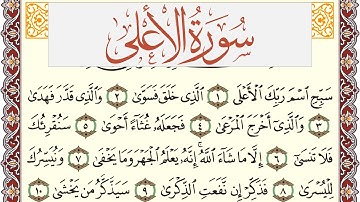 سُورَةُ الْأَعْلَى
سَبِّحِ اسْمَ رَبِّكَ الْأَعْلَى ١ الَّذِي خَلَقَ فَسَوَّى ٢ وَالَّذِي قَدَّرَ فَهَدَى
٣ وَالَّذِي أَخْرَجَ الْمَرْعَى ٤ فَجَعَلَهُ غُثَاءً أَحْوَى ٥ سَنُقْرِئُكَ
فَلَا تَنسَى ٦ إِلَّا مَا شَاءَ اللَّهُ إِنَّهُ يَعْلَمُ الْجَهْرَ وَمَا يَخْفَى ٧ وَنُيَسِّرُكَ
لِلْيُسْرَى ٨ فَذَكِّرْ إِن نَّفَعَتِ الذِّكْرَى ٩ سَيَذَّكَّرُ مَن يَخْشَى ١٠